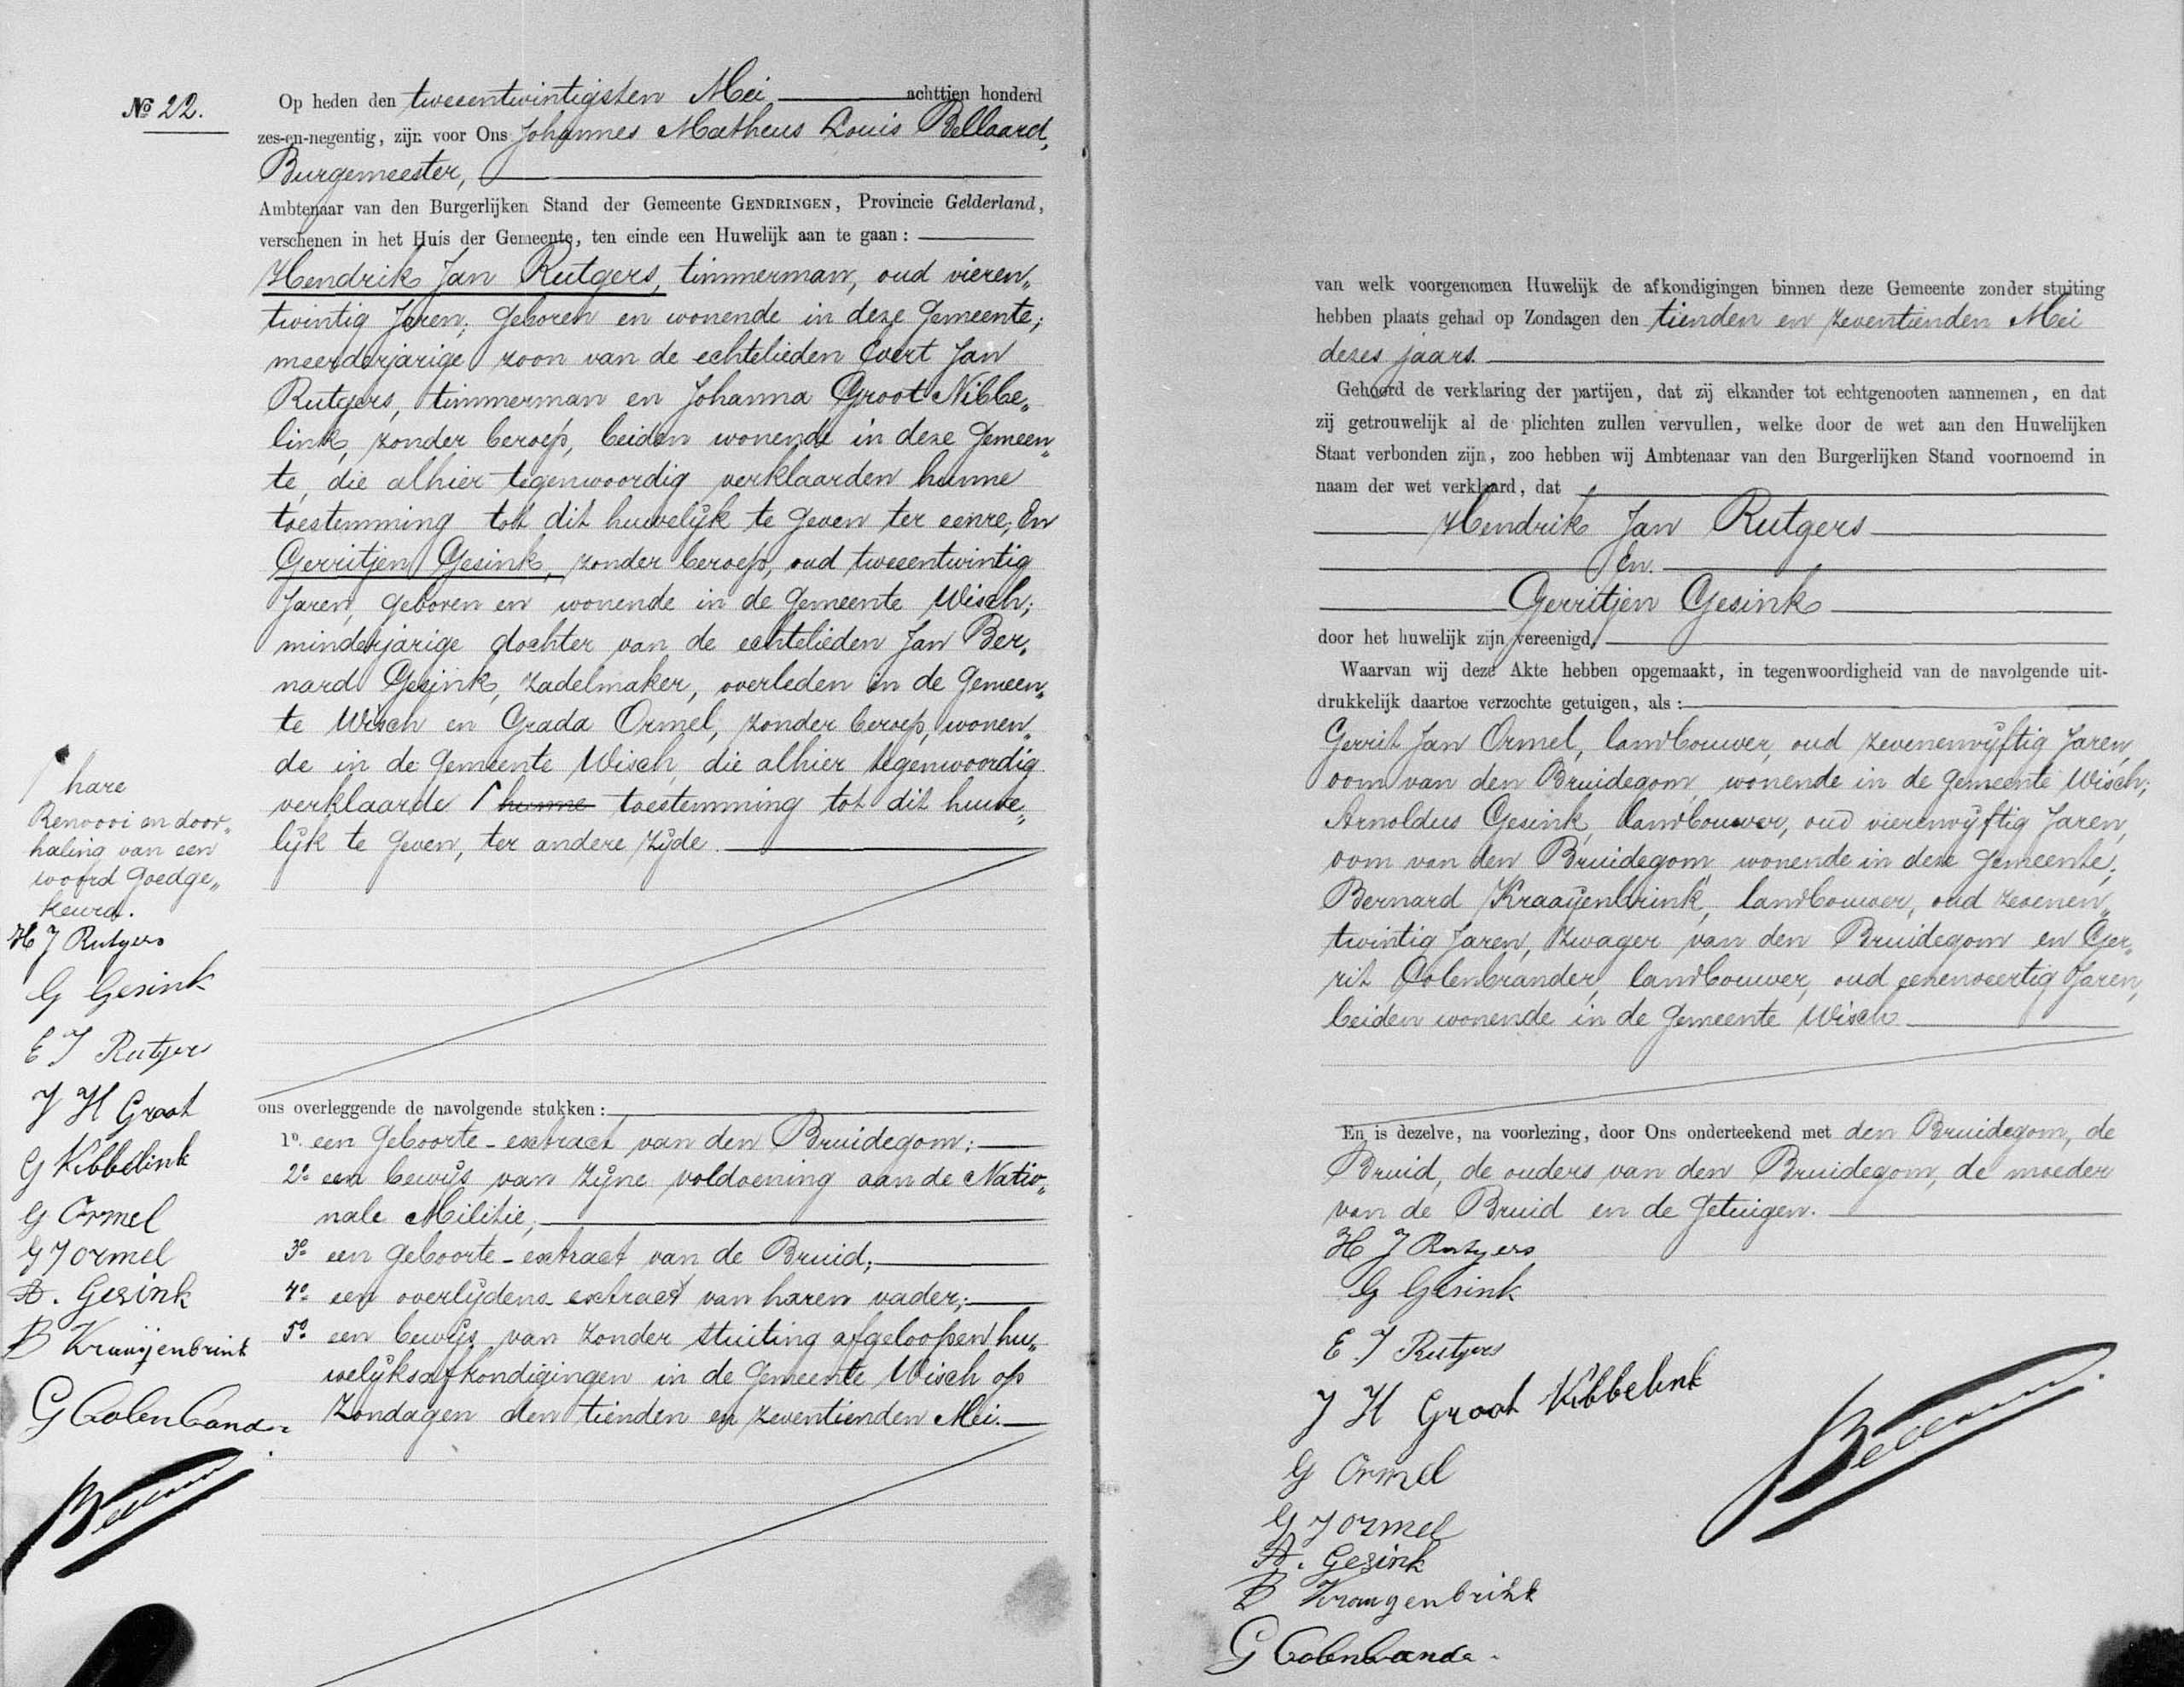 № 22.
Op heden den tweeentwintigsten Mei achttien honderd
zes-en-negentig, zijn voor Ons Johannes Matheus Louis Bellaard,
Burgemeester,
Ambtenaar van den Burgerlijken Stand der Gemeente GENDRINGEN, Provincie Gelderland,
verschenen in het Huis der Gemeente, ten einde een Huwelijk aan te gaan :
Hendrik Jan Rutgers, timmerman, oud vieren„
twintig Jaren, geboren en wonende in deze Gemeente;
meerderjarige zoon van de echtelieden Evert Jan
Rutgers, timmerman en Johanna Groot Nibbe„
link, zonder beroep, beiden wonende in deze Gemeen„
te, die alhier tegenwoordig verklaarden hunne
toestemming tot dit huwelijk te geven ter eenre; En
Gerritjen Gesink, zonder beroep, oud tweeentwintig
Jaren, geboren en wonende in de Gemeente Wisch;
minderjarige dochter van de echtelieden Jan Ber„
nard Gesink, zadelmaker, overleden in de Gemeen„
te Wisch en Grada Ormel, zonder beroep, wonen„
de in de Gemeente Wisch, die alhier tegenwoordig
verklaarde ⌈ hunne toestemming tot dit huwe„
lijk te geven, ter andere zijde.
⌈ hare
Renvooi en door„
haling van een
woord goedge„
keurd.
H J Rutgers
G Gesink
E J Rutgers
J H Groot
G Kibbelink
G Ormel
G J Ormel
A. Gesink
B Kraaijenbrink
G Colenbrander
Bellaard
ons overleggende de navolgende stukken :
1º een geboorte-extract van den Bruidegom;
2º een bewijs van zijne voldoening aan de Natio„
nale Militie;
3º een geboorte-extract van de Bruid;
4º een overlijdens-extract van haren vader;
5º een bewijs van zonder stuiting afgeloopen hu„
welijksafkondigingen in de Gemeente Wisch op
Zondagen den tienden en zeventienden Mei.
van welk voorgenomen Huwelijk de afkondigingen binnen deze Gemeente zonder stuiting
hebben plaats gehad op Zondagen den tienden en zeventienden Mei
dezes jaars.
Gehoord de verklaring der partijen, dat zij elkander tot echtgenooten aannemen, en dat
zij getrouwelijk al de plichten zullen vervullen, welke door de wet aan den Huwelijken
Staat verbonden zijn, zoo hebben wij Ambtenaar van den Burgerlijken Stand voornoemd in
naam der wet verklaard, dat
Hendrik Jan Rutgers
En
Gerritjen Gesink
door het huwelijk zijn vereenigd.
Waarvan wij deze Akte hebben opgemaakt, in tegenwoordigheid van de navolgende uit-
drukkelijk daartoe verzochte getuigen, als :
Gerrit Jan Ormel, landbouwer, oud zevenenvijftig Jaren,
oom van den Bruidegom, wonende in de Gemeente Wisch;
Arnoldus Gesink, landbouwer, oud vierenvijftig Jaren,
oom van den Bruidegom, wonende in deze Gemeente;
Bernard Kraaijenbrink, landbouwer, oud zevenen„
twintig Jaren, zwager van den Bruidegom en Ger„
rit Colenbrander, landbouwer, oud eenenveertig Jaren,
beiden wonende in de Gemeente Wisch
En is dezelve, na voorlezing, door Ons onderteekend met den Bruidegom, de
Bruid, de ouders van den Bruidegom, de moeder
van de Bruid en de Getuigen.
H J Rutgers
G Gesink
E J Rutgers
J H Groot Kibbelink
G Ormel
G J Ormel
A. Gesink
B Kraaijenbrink
G Colenbrander
Bellaard